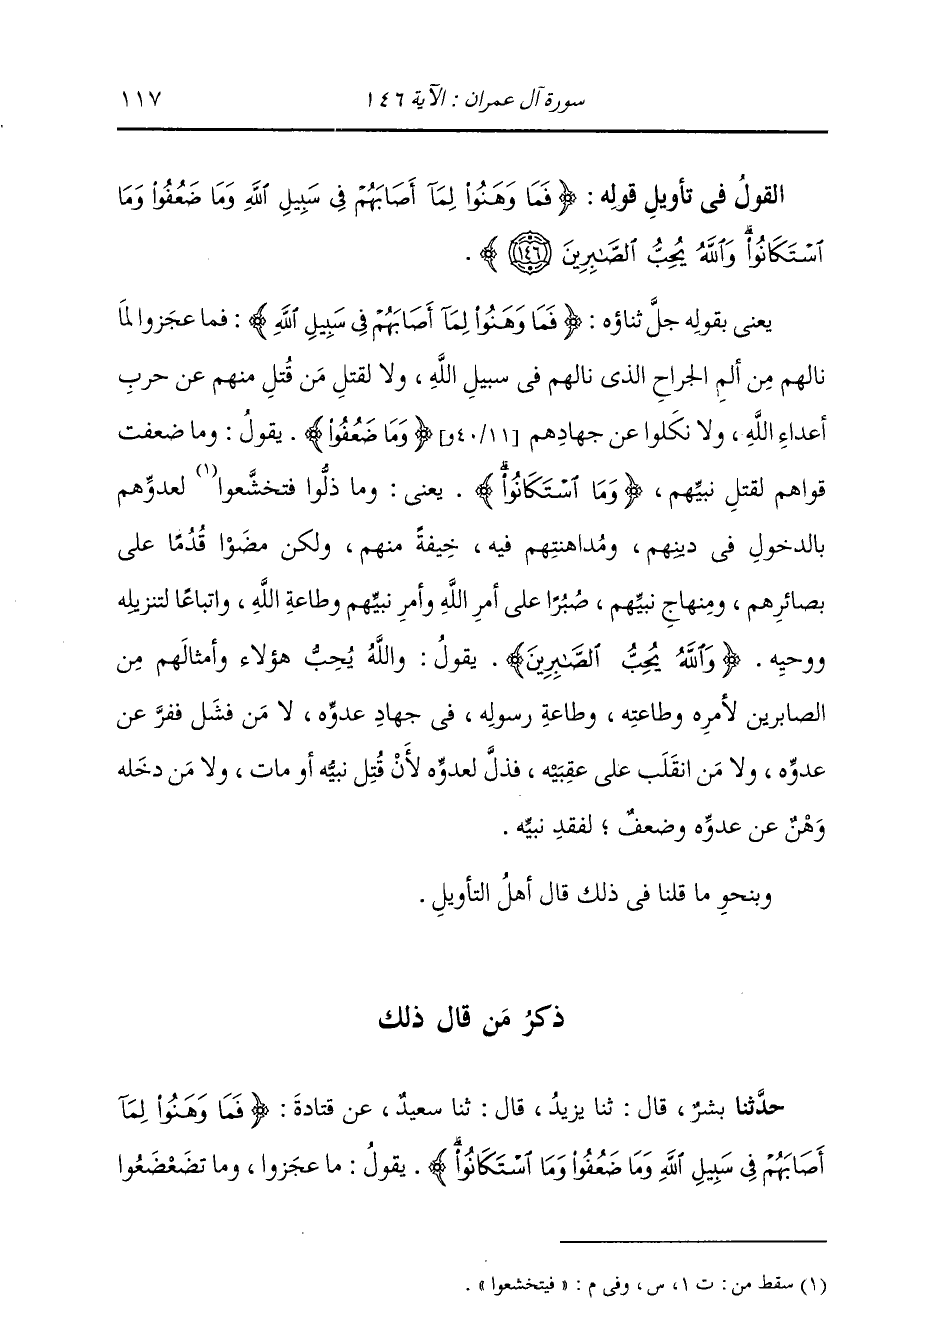 سورة آل عمران : الآية ١٤٦ ١١٧
القولُ فى تأويلِ قولِه : ﴿ فَمَا وَهَنُوا۟ لِمَآ أَصَابَهُمْ فِى سَبِيلِ ٱللَّهِ وَمَا ضَعُفُوا۟ وَمَا
ٱسْتَكَانُوا۟ۗ وَٱللَّهُ يُحِبُّ ٱلصَّـٰبِرِينَ ١٤٦ ﴾ .
يعنى بقولِه جلَّ ثناؤه : ﴿ فَمَا وَهَنُوا۟ لِمَآ أَصَابَهُمْ فِى سَبِيلِ ٱللَّهِ ﴾ : فما عجَزوا لمَا
نالهم مِن ألمِ الجراحِ الذى نالهم فى سبيلِ اللَّهِ ، ولا لقتلِ مَن قُتِل منهم عن حربِ
أعداءِ اللَّهِ ، ولا نكَلوا عن جهادِهم [٤٠/١١و] ﴿ وَمَا ضَعُفُوا۟ ﴾ . يقولُ : وما ضعفت
قواهم لقتلِ نبيِّهم ، ﴿ وَمَا ٱسْتَكَانُوا۟ۗ ﴾ . يعنى : وما ذلُّوا فتخشَّعوا(١) لعدوِّهم
بالدخولِ فى دينِهم ، ومُداهنتِهم فيه ، خِيفةً منهم ، ولكن مضَوْا قُدُمًا على
بصائرِهم ، ومِنهاجِ نبيِّهم ، صُبُرًا على أمرِ اللَّهِ وأمرِ نبيِّهم وطاعةِ اللَّهِ ، واتباعًا لتنزيلِه
ووحيِه . ﴿ وَٱللَّهُ يُحِبُّ ٱلصَّـٰبِرِينَ ﴾ . يقولُ : واللَّهُ يُحِبُّ هؤلاء وأمثالَهم مِن
الصابرين لأمرِه وطاعتِه ، وطاعةِ رسولِه ، فى جهادِ عدوِّه ، لا مَن فشَل ففرَّ عن
عدوِّه ، ولا مَن انقَلَب على عقِبَيْه ، فذلَّ لعدوِّه لأَنْ قُتِل نبيُّه أو مات ، ولا مَن دخَله
وَهْنٌ عن عدوِّه وضعفٌ ؛ لفقدِ نبيِّه .
وبنحوِ ما قلنا فى ذلك قال أهلُ التأويلِ .
ذكرُ مَن قال ذلك
حدَّثنا بشرٌ ، قال : ثنا يزيدُ ، قال : ثنا سعيدٌ ، عن قتادةَ : ﴿ فَمَا وَهَنُوا۟ لِمَآ
أَصَابَهُمْ فِى سَبِيلِ ٱللَّهِ وَمَا ضَعُفُوا۟ وَمَا ٱسْتَكَانُوا۟ۗ ﴾ . يقولُ : ما عجَزوا ، وما تضَعْضَعُوا
(١) سقط من : ت ١، س ، وفى م : « فيتخشعوا » .